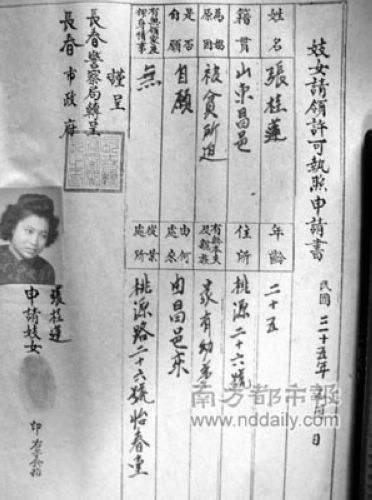 妓女請領許可執照申請書
民國三十五年 月 日
姓名 張桂蓮 年齡 二十五
籍貫 山東昌邑 住所 桃源二十六號
為娼原因 被貧所迫 有無本夫及親族 家有幼弟
是否自願 自願 由何處來 由昌邑來
有無領支押身情事 無 從業處所 桃源路二十六號怡春堂
謹呈
長春警察局轉呈
長春市政府
張桂蓮
申請妓女
印
南方都市報
www.nddaily.com